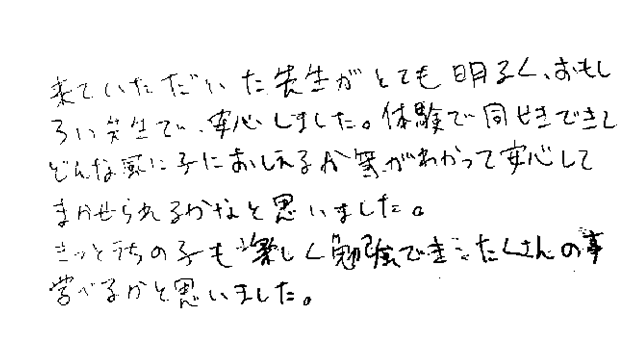 来ていただいた先生がとても明るく、おもし
ろい先生で、安心しました。体験で同せきできて
どんな風に子におしえるか等がわかって安心して
まかせられるかなと思いました。
きっとうちの子も楽しく勉強できたくさんの事
学べるかと思いました。